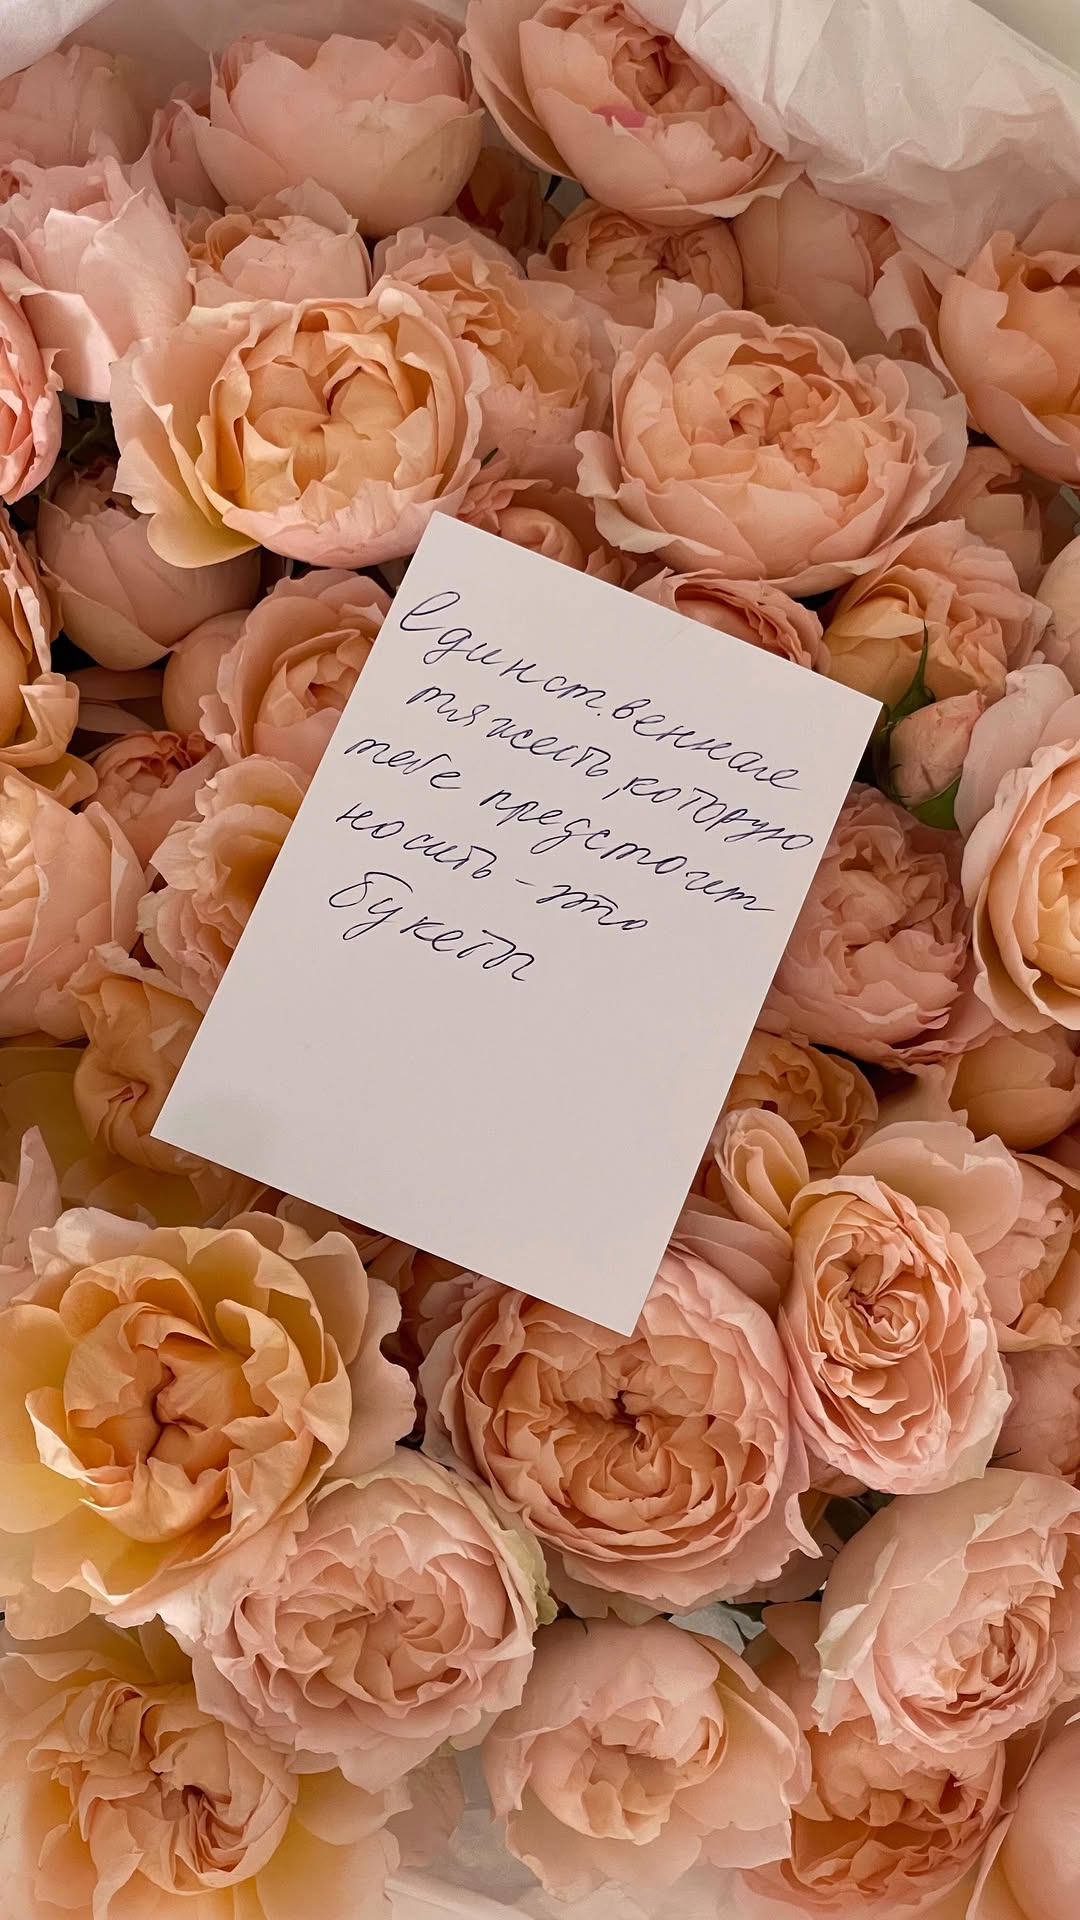 Единственная
тяжесть, которую
тебе предстоит
носить - это
букеты